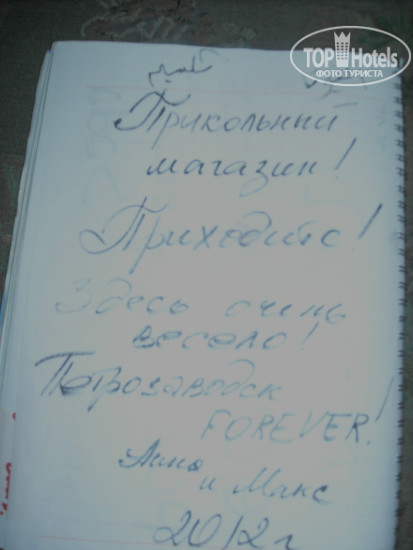 TOP Hotels
ФОТО ТУРИСТА
Прикольний
магазин!
Приходите!
Здесь очень
весело!
Петрозаводск
FOREVER!
и Макс
2012 г